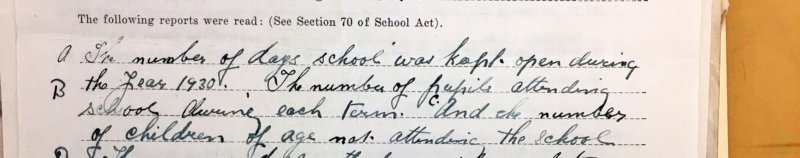 The following reports were read: (See Section 70 of School Act).
A The number of days school was kept open during
B the year 1930. The number of pupils attending
school during each term. C And the number
of children of age not attending the school